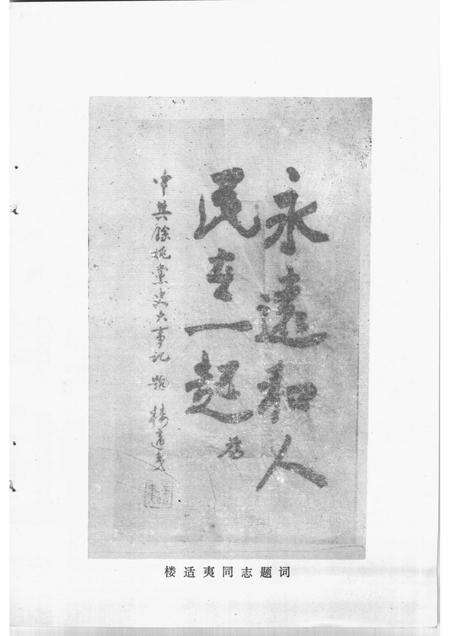 永遠和人
民在一起
为
中共馀姚党史大事记题 楼适夷
楼适夷同志题词